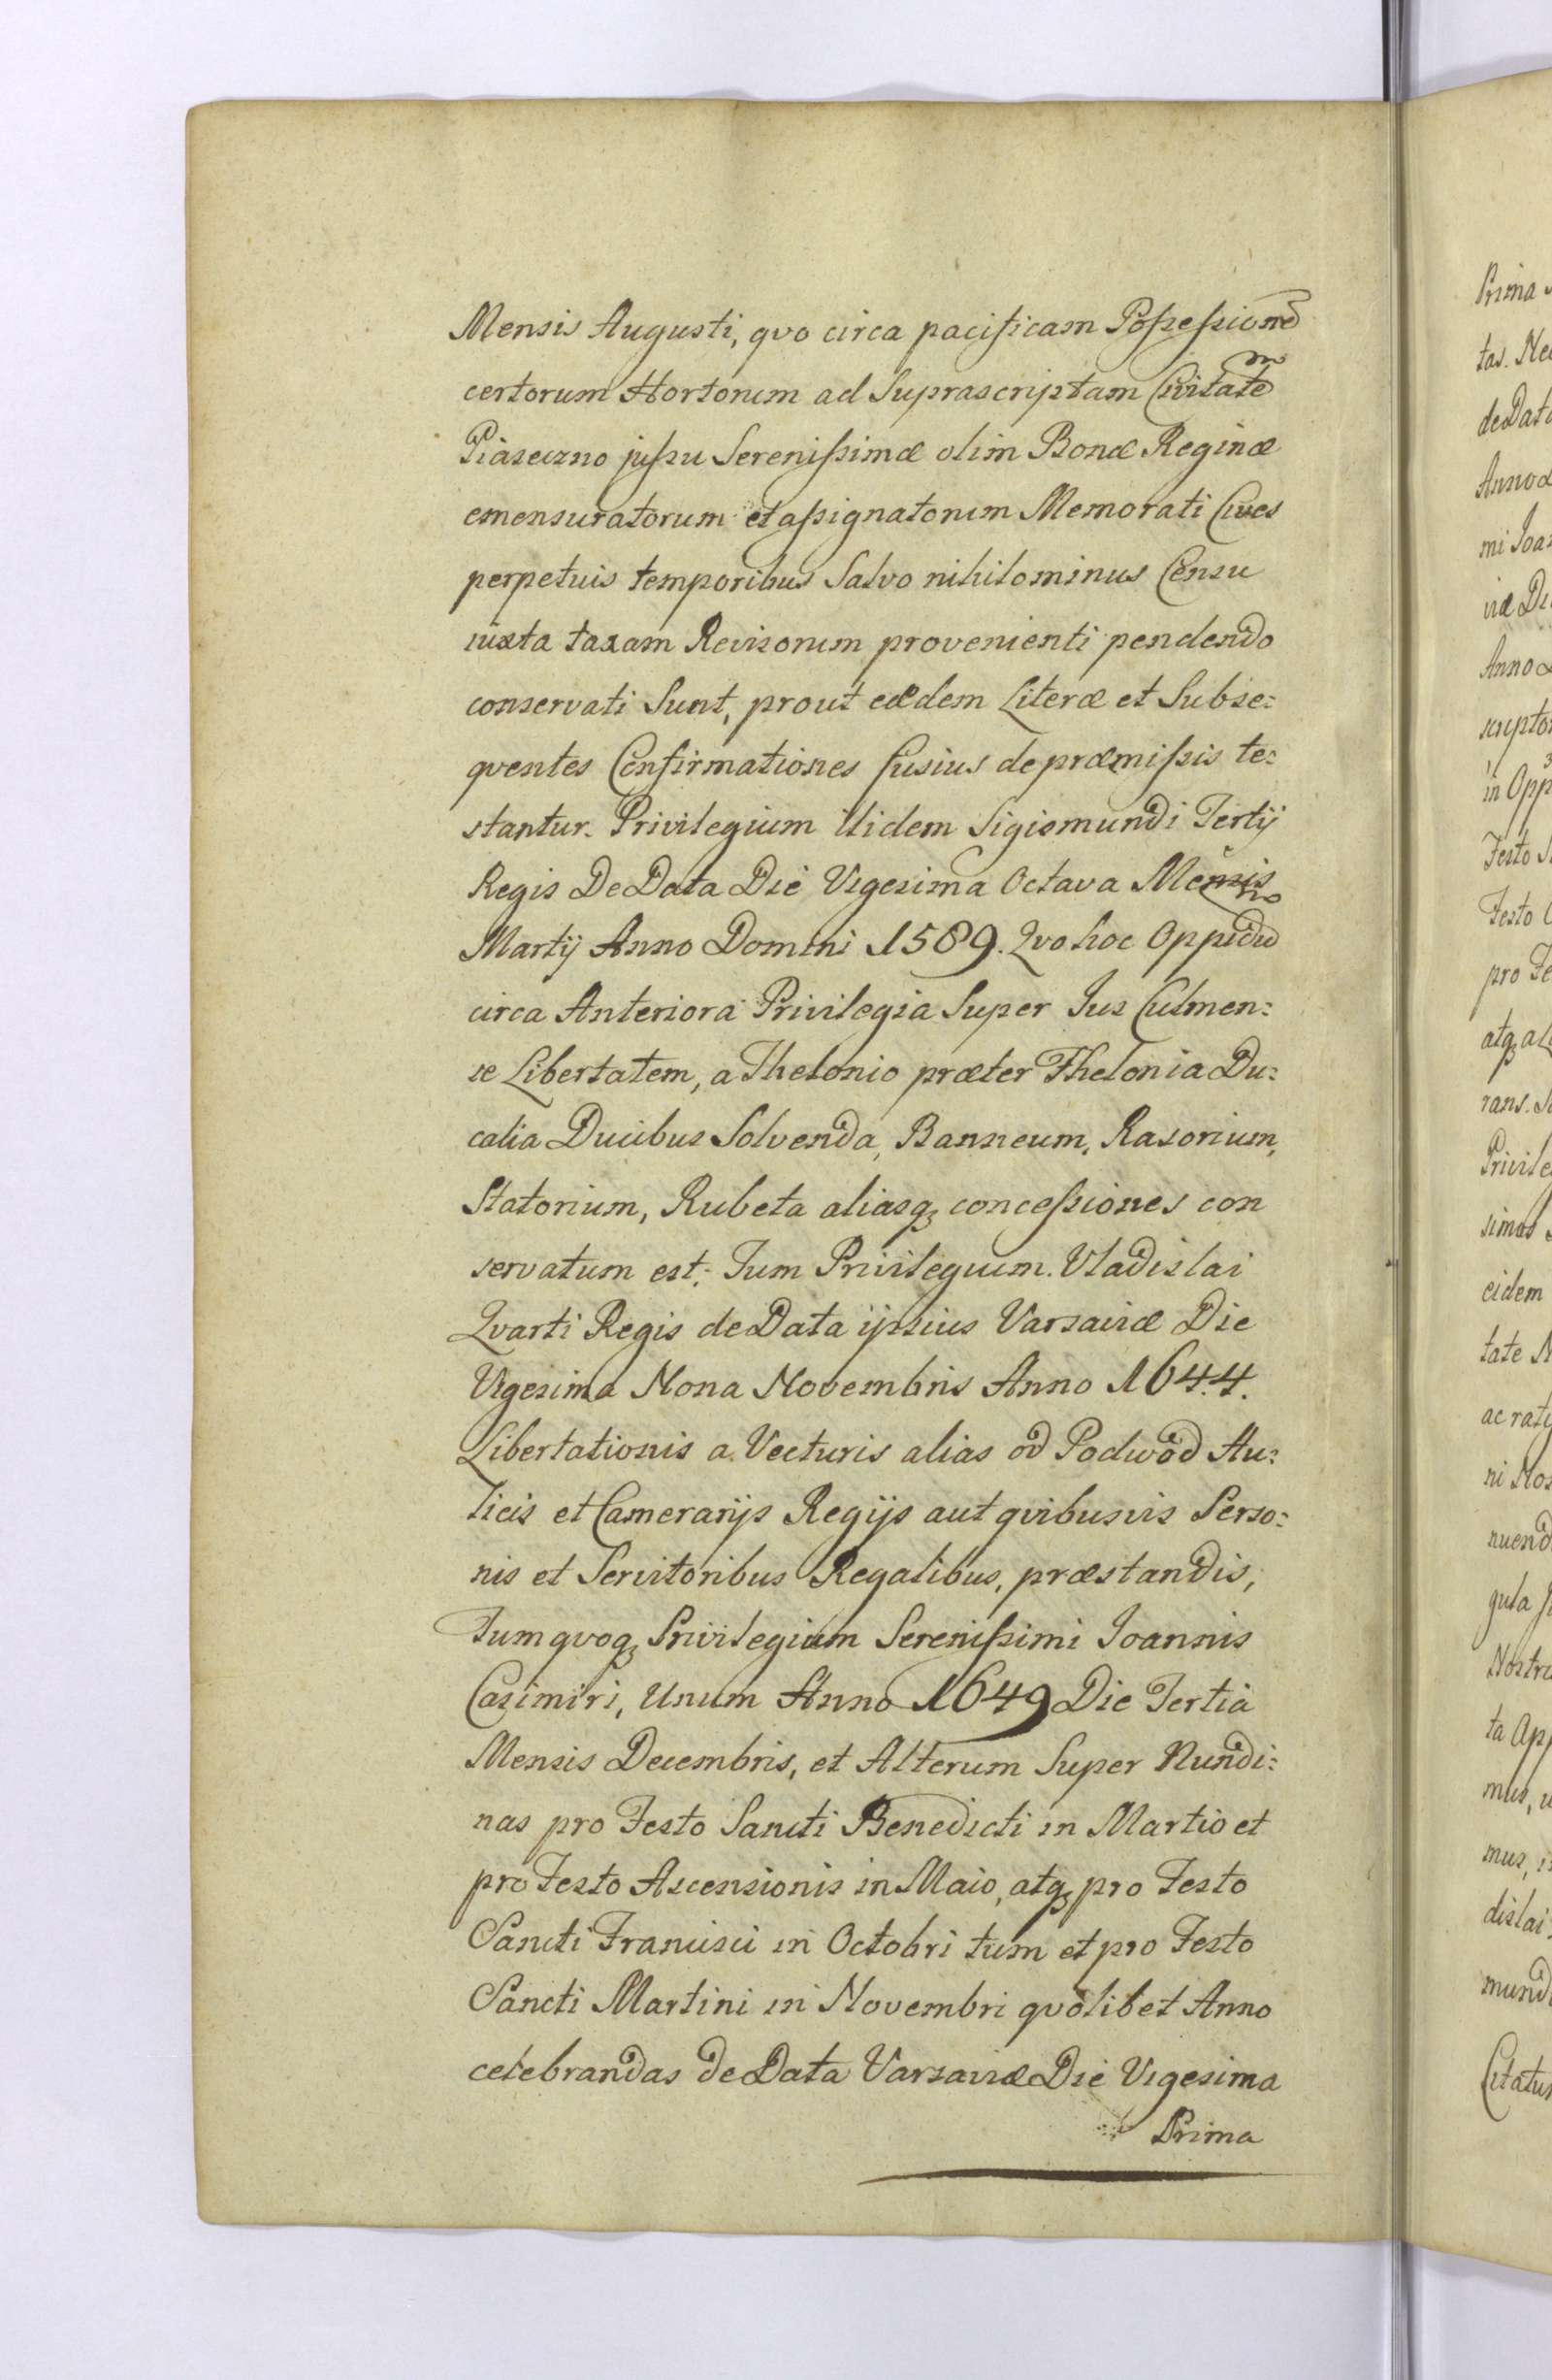 Mensis Augusti, qvo circa pacificam Poſseſsionẽ
certorum Hortorum ad Suprascriptam Civitatem
Piaseczno juſsu Sereniſsimæ olim Bonæ Reginæ
emensuratorum et aſsignatorum Memorati Cives
perpetuis temporibus Salvo nihilominus Censu
iuxta taxam Revisorum provenienti pendendo
conservati Sunt, prout eædem Literæ et Subse:
qventes Confirmationes fusius de præmiſsis te:
stantur. Privilegium itidem Sigismundi Tertij
Regis De Data Die Vigesima Octava Mensis
Martij Anno Domini 1589. Qvo hoc Oppidũ
circa Anteriora Privilegia Super Jus Culmen:
se Libertatem, a Thelonio præter Thelonia Du:
calia Ducibus Solvenda, Banneum, Rasorium,
Statorium, Rubeta aliasq; conceſsiones con
servatum est; Tum Privilegium. Vladislai
Qvarti Regis de Data ipsius Varsaviæ Die
Vigesima Nona Novembris Anno 1644.
Libertationis a Vecturis alias od Podwod Au:
licis et Camerarijs Regijs aut qvibusvis Perso:
nis et Servitoribus Regalibus, præstandis,
Tum qvoq; Privilegium Sereniſsimi Joannis
Casimiri, Unum Anno 1649 Die Tertia
Mensis Decembris, et Alterum Super Nundi:
nas pro Festo Sancti Benedicti in Martio et
pro Festo Ascensionis in Maio, atq; pro Festo
Sancti Francisci in Octobri tum et pro Festo
Sancti Martini in Novembri qvolibet Anno
celebrandas de Data Varsaviæ Die Vigesima
Prima